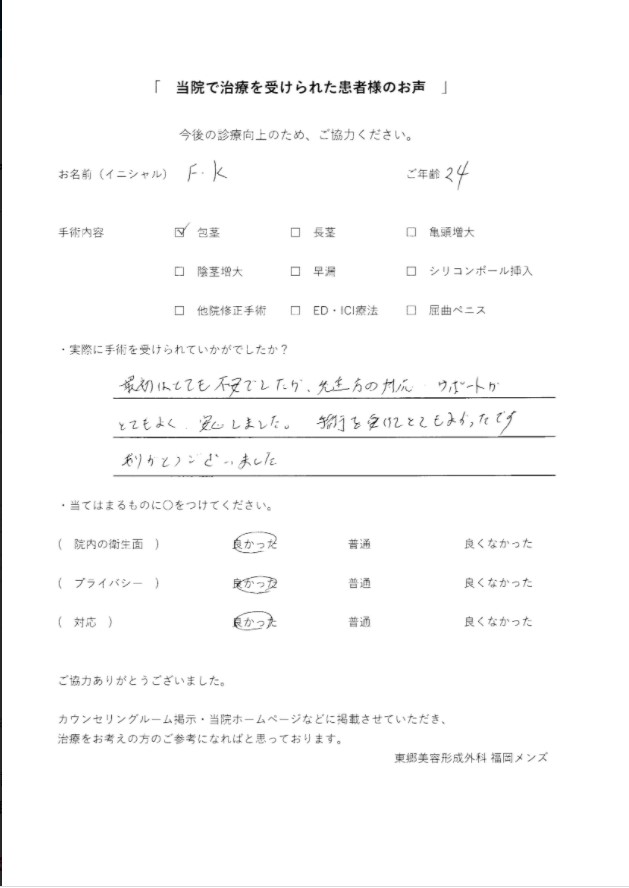 「 当院で治療を受けられた患者様のお声 」
今後の診療向上のため、ご協力ください。
お名前（イニシャル） F・K ご年齢 24
手術内容 ☑ 包茎 □ 長茎 □ 亀頭増大
□ 陰茎増大 □ 早漏 □ シリコンボール挿入
□ 他院修正手術 □ ED・ICI療法 □ 屈曲ペニス
・実際に手術を受けられていかがでしたか？
最初はとても不安でしたが、先生方の対応 サポートが
とてもよく、安心しました。 手術を受けてとてもよかったです
ありがとうございました
・当てはまるものに〇をつけてください。
( 院内の衛生面 ) 良かった 普通 良くなかった
( プライバシー ) 良かった 普通 良くなかった
( 対応 ) 良かった 普通 良くなかった
ご協力ありがとうございました。
カウンセリングルーム掲示・当院ホームページなどに掲載させていただき、
治療をお考えの方のご参考になればと思っております。
東郷美容形成外科 福岡メンズ